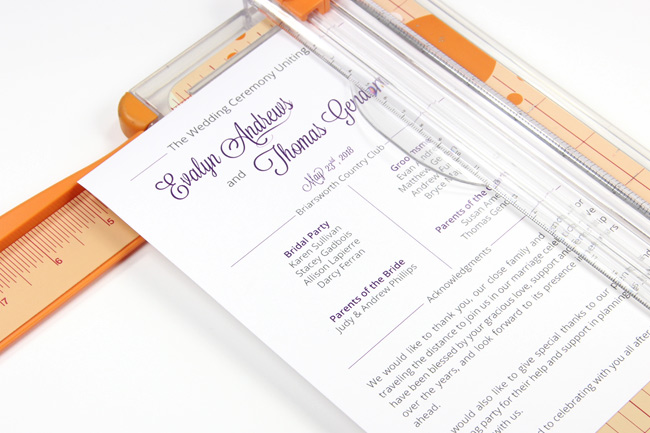 The Wedding Ceremony Uniting
Evalyn Andrews
and
Thomas Gendon
May 23rd, 2018
Briarsworth Country Club
Bridal Party
Karen Sullivan
Stacey Gadbois
Allison Lapierre
Darcy Ferran
Groomsmen
Evan
Matthew
Andrew
Bryce
Parents of the Bride
Judy & Andrew Phillips
Parents of the
Susan
Thomas
Acknowledgments
We would like to thank you, our close family and
traveling the distance to join us in our marriage
have been blessed by your gracious love, support and
over the years, and look forward to its presence
ahead.
would also like to give special thanks to our
party for their help and support in planning
with us.
to celebrating with you all after
15
16
17